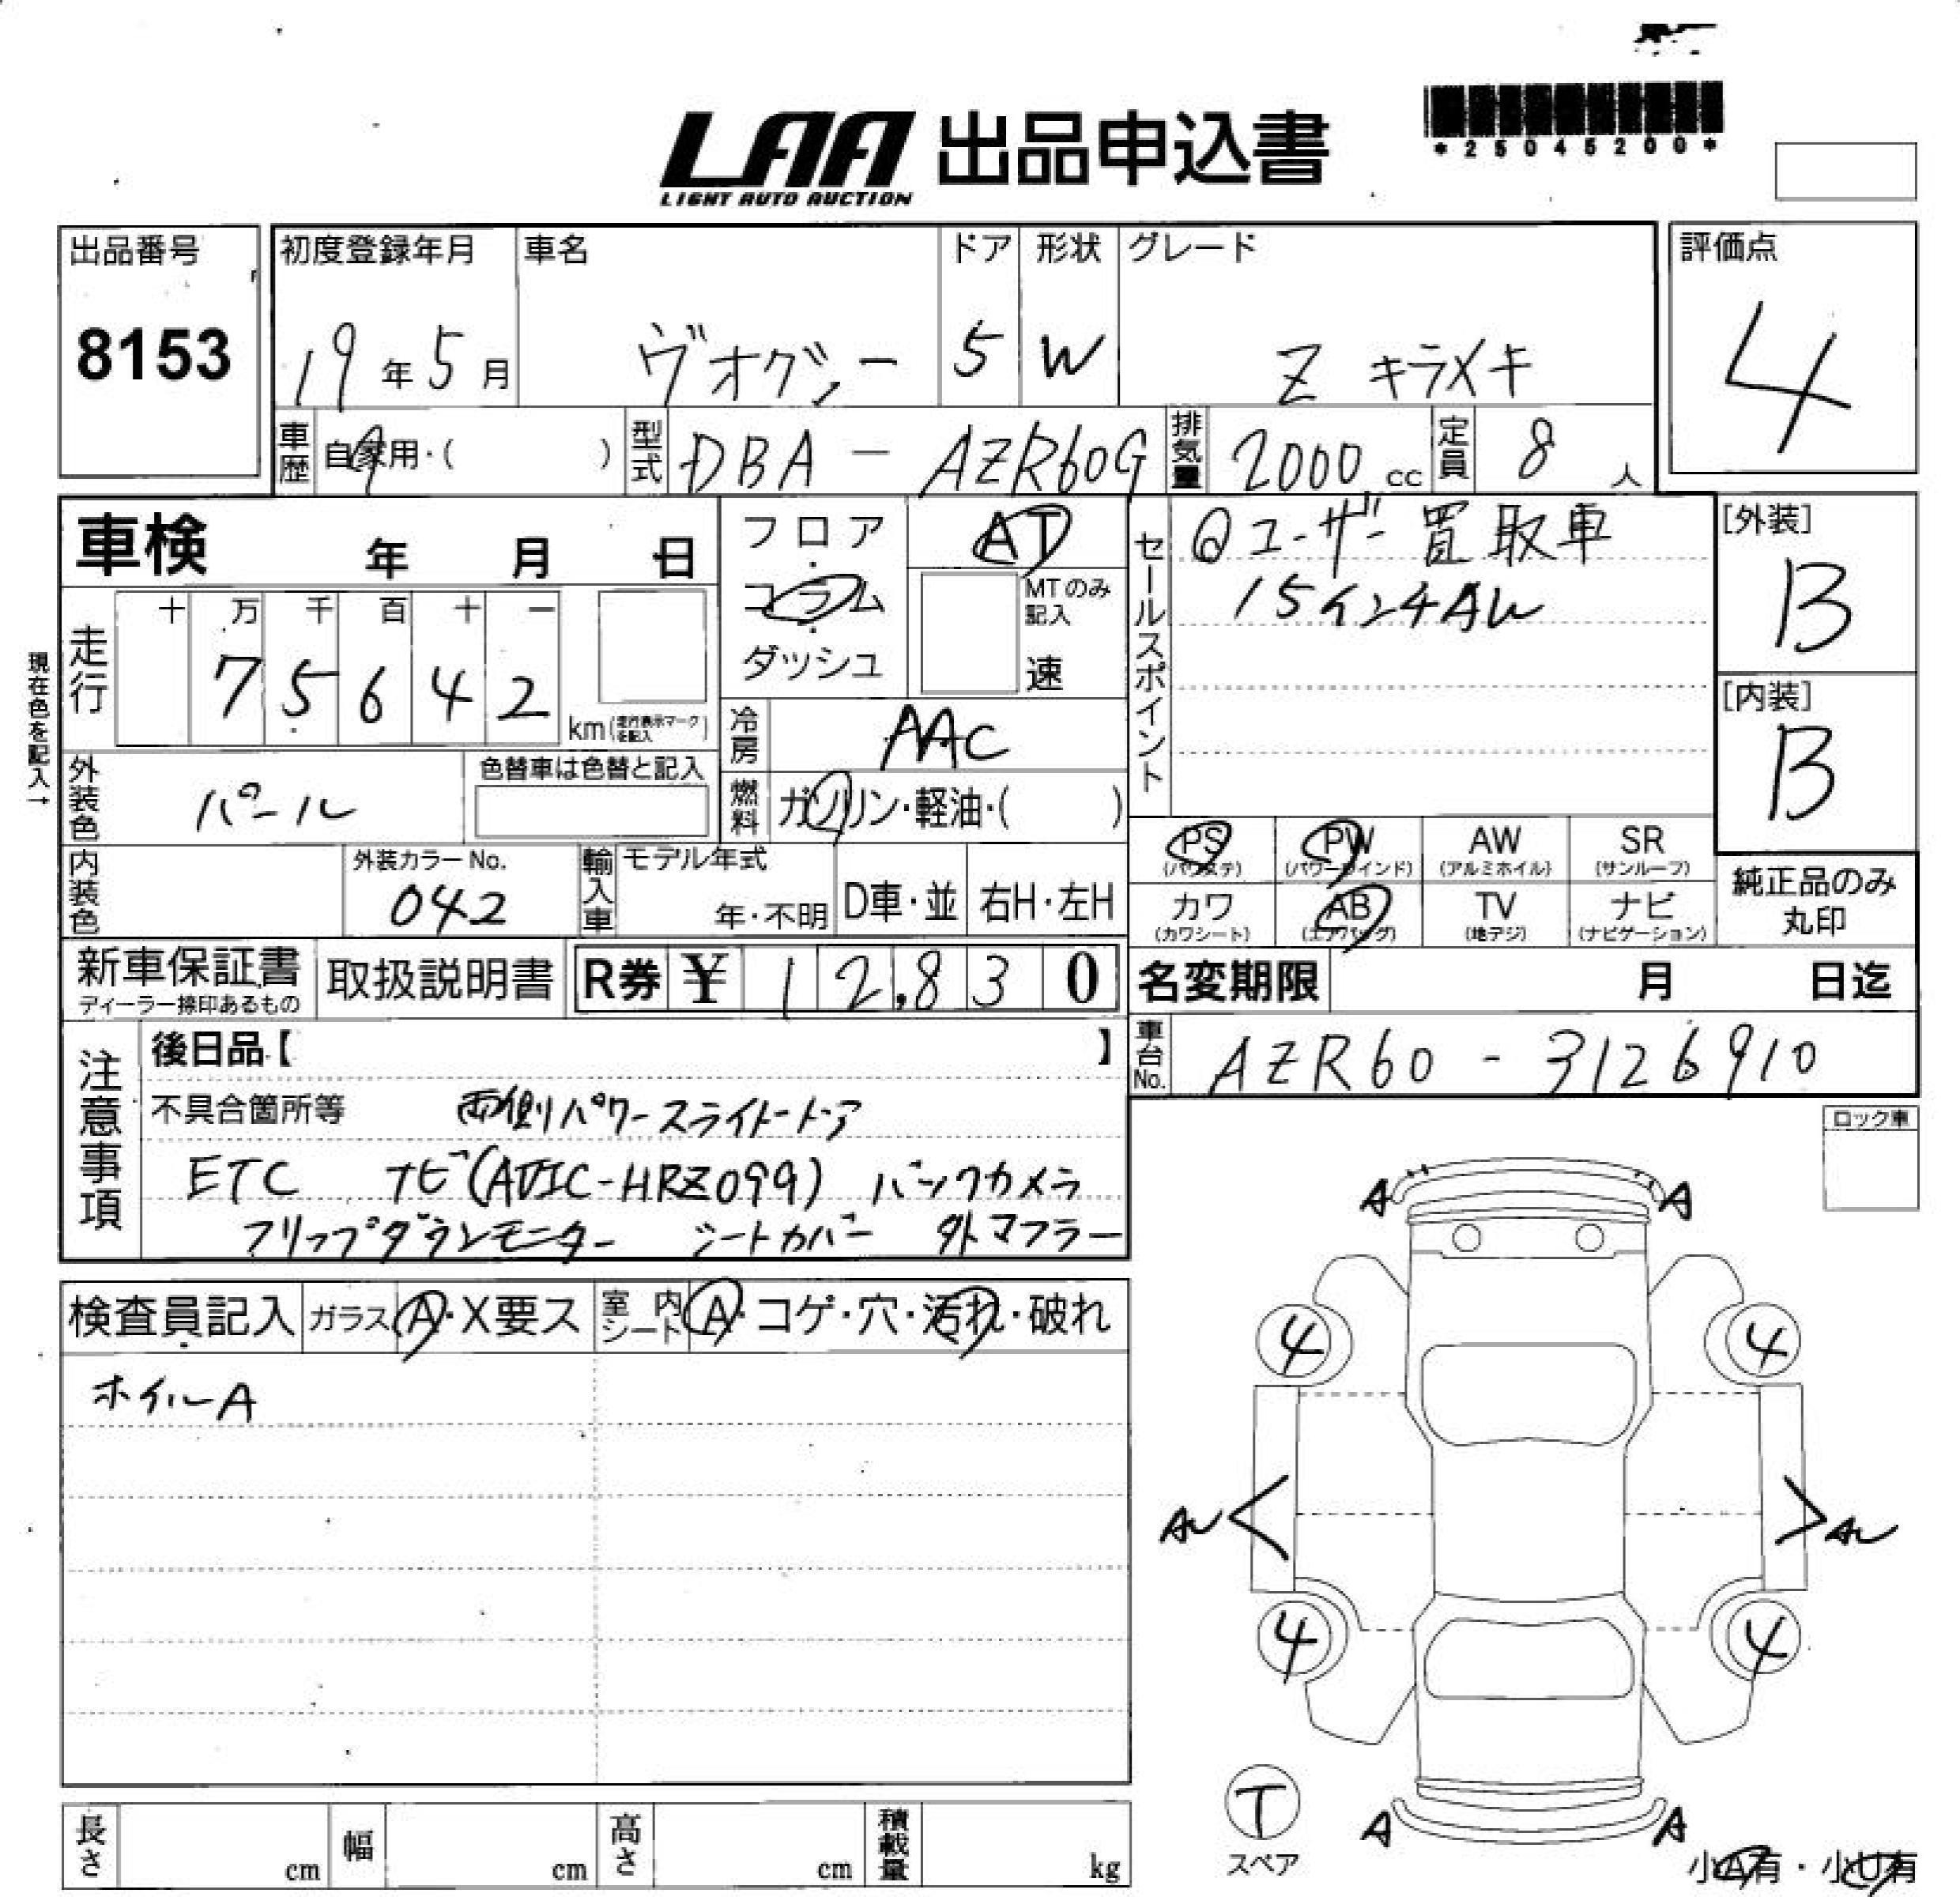 LAA 出品申込書
LIGHT AUTO AUCTION
*25045200*
出品番号 初度登録年月 車名 ドア 形状 グレード 評価点
8153 19年5月 ヴオクシー 5 W Z キラメキ 4
車歴 自家用・( ) 型式 DBA-AZR60G 排気量 2000cc 定員 8人
車検 年 月 日
フロア・コラム・ダッシュ
AT
MTのみ記入
速
セールスポイント
@ユーザー買取車
15インチAW
[外装]
B
[内装]
B
現在色を記入→
走行 十 万 千 百 十 一
75642 km(走行表示マークを記入)
冷房 AAC
外装色 パール 色替車は色替と記入
燃料 ガソリン・軽油・( )
内装色 外装カラーNo. 042
輸入車 モデル年式 年・不明 D車・並 右H・左H
PS (パワステ) PW (パワーウインド) AW (アルミホイル) SR (サンルーフ)
カワ (カワシート) AB (エアバッグ) TV (地デジ) ナビ (ナビゲーション)
純正品のみ丸印
新車保証書 ディーラー捺印あるもの 取扱説明書 R券 ¥ 12,830
名変期限 月 日迄
車台No. AZR60-3126910
注意事項
後日品【 】
不具合箇所等 両側パワースライドドア
ETC ナビ(AVIC-HRZ099) バックカメラ
フリップダウンモニター シートカバー 外マフラー
ロック車
検査員記入 ガラス A・X要ス 室内シート A・コゲ・穴・汚れ・破れ
ホイルA
A A
4 4
AU AU
4 4
T
スペア
A A
小A有・小U有
長さ cm 幅 cm 高さ cm 積載量 kg